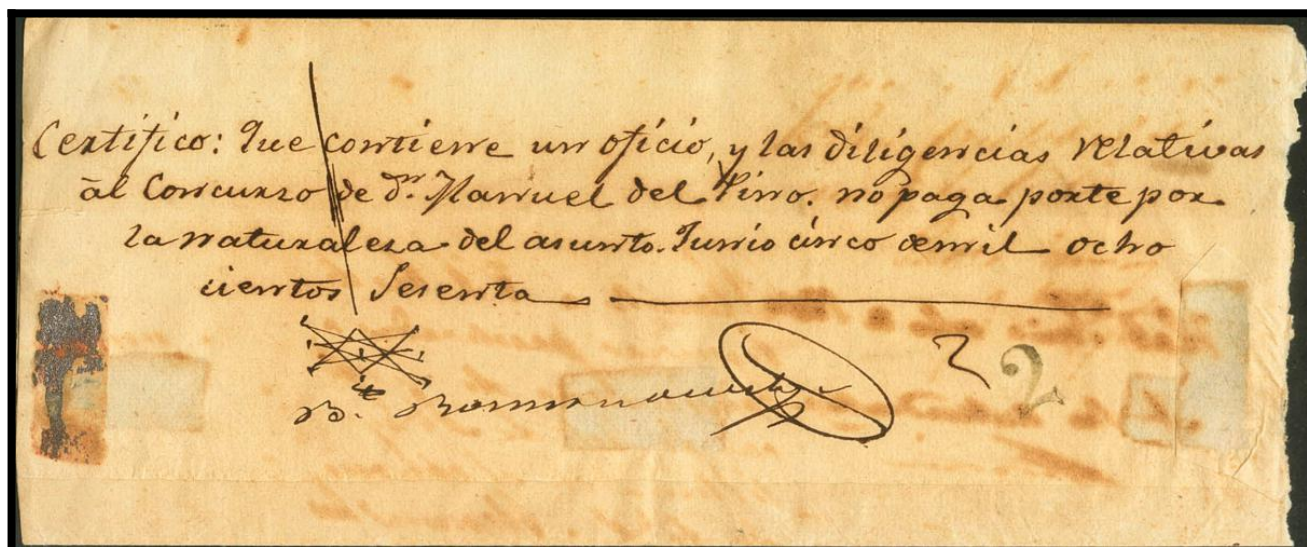 Certifico: Que contiene un oficio, y las diligencias relativas
al Concurzo de Dn. Manuel del Pino. no paga porte por
la naturaleza del asunto. Junio cinco de mil ocho
cientos Sesenta
2